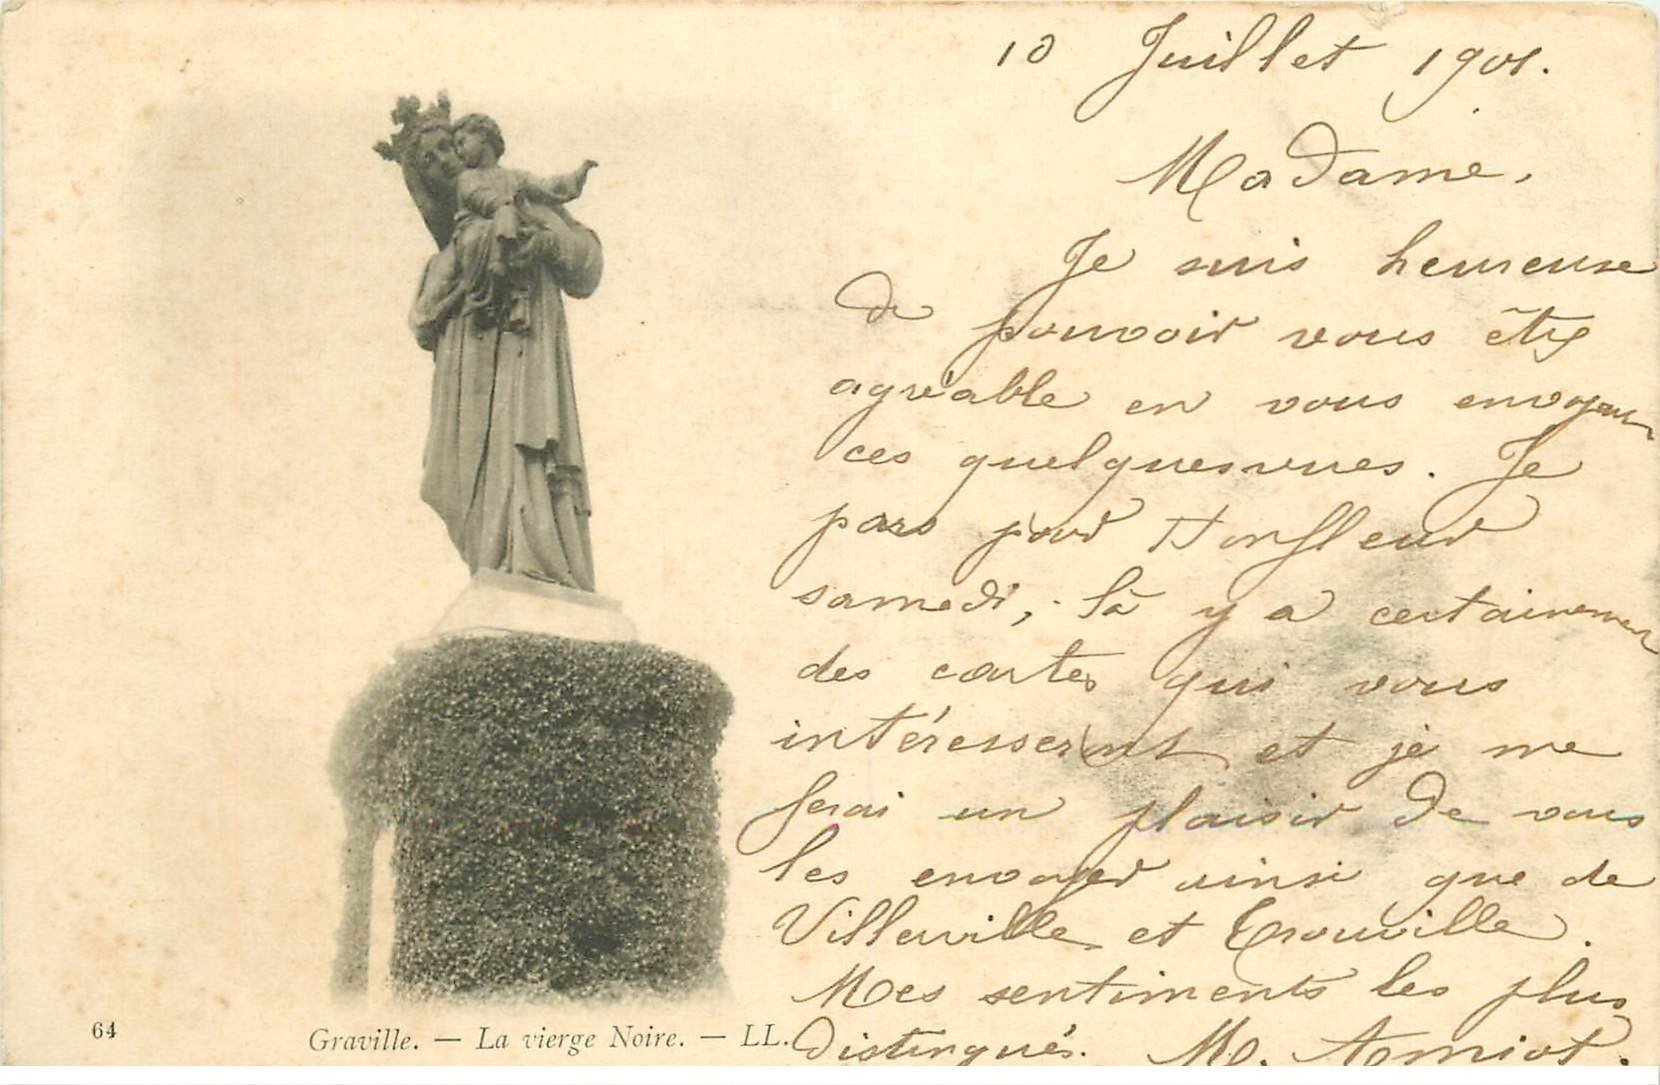 10 Juillet 1901.
Madame,
Je suis heureuse
de pouvoir vous être
agréable en vous envoyant
ces quelques vues. Je
pars pour Honfleur
samedi, là y a certainement
des cartes qui vous
intéresseront et je me
ferai un plaisir de vous
les envoyer ainsi que de
Villerville et Trouville.
Mes sentiments les plus
distingués. M. Amiot.
64
Graville. — La vierge Noire. — LL.